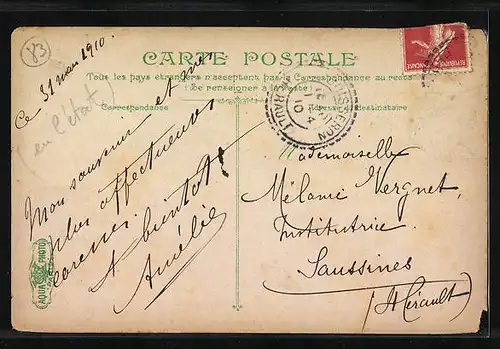 83
Ce 31 mars 1910.
(en l'état)
CARTE POSTALE
Tous les pays étrangers n'acceptent pas la Correspondance au recto
(Se renseigner à la Poste)
Correspondance
Adresse destinataire
REPUBLIQUE FRANÇAISE
HERAULT
10
Mon souvenir et mes
plus affectueuses
caresses.
A bientôt!
Amélie
Mademoiselle
Mélanie Vergnet,
Institutrice
Saussines
(Hérault)
AQUA PHOTO